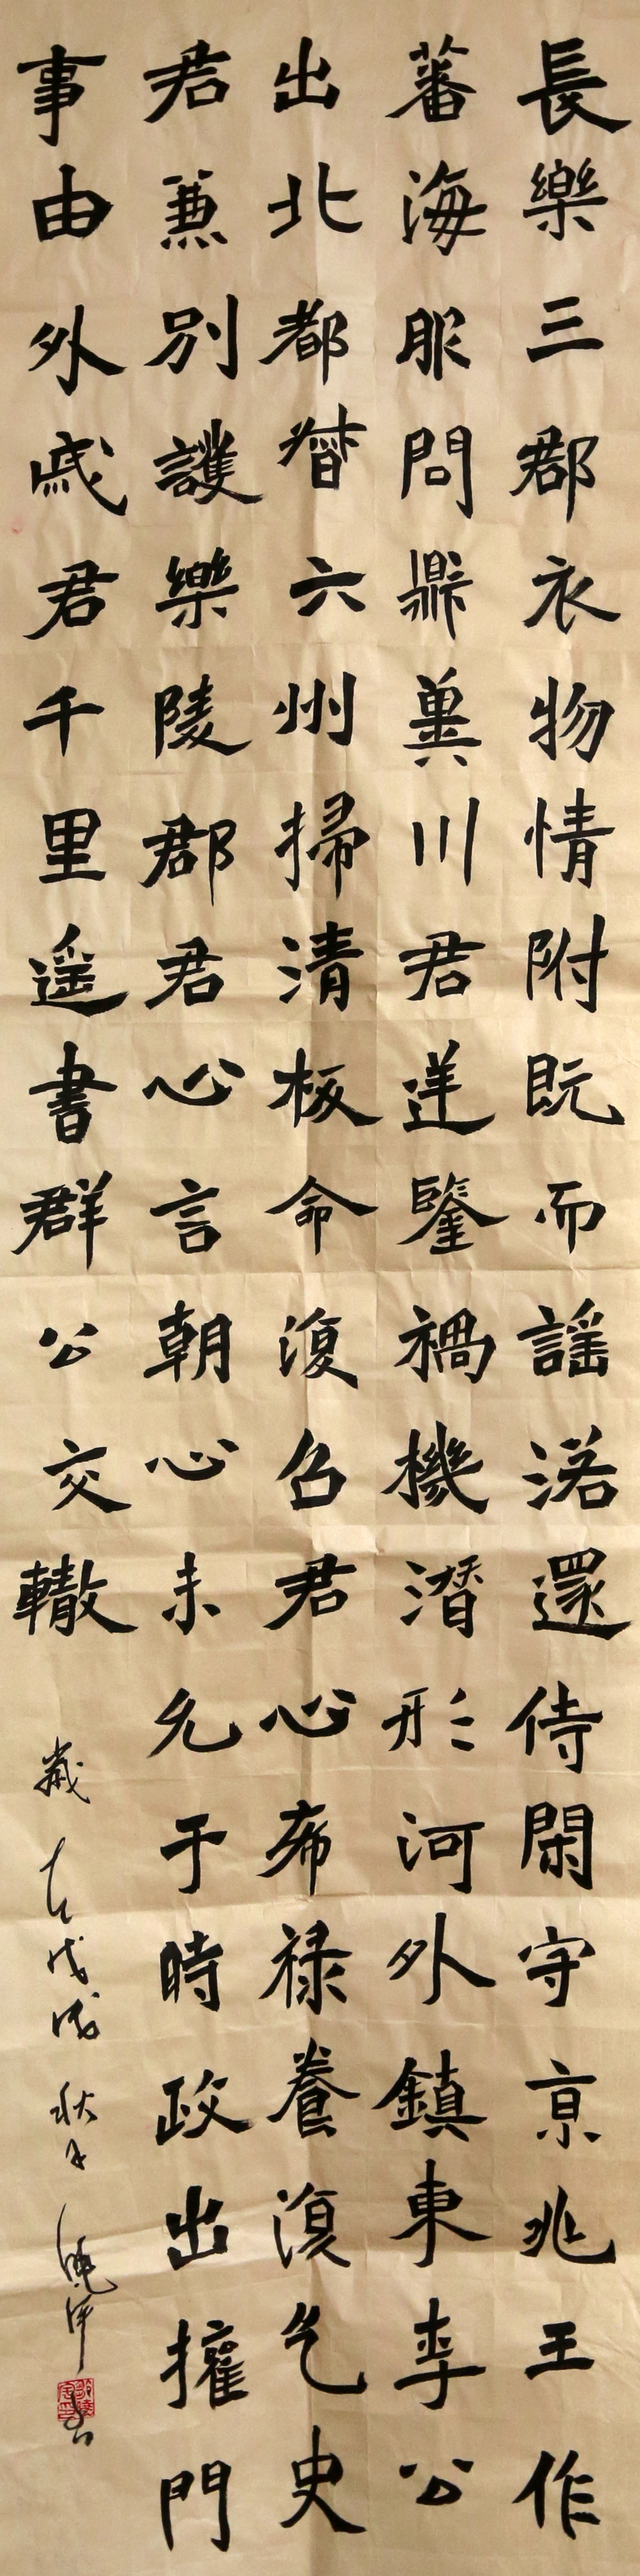 長樂三郡衣物情附既而謡諾還侍閑守京兆王作
蕃海服問鼎冀川君逆鑒禍機潛形河外鎮東李公
出北都督六州掃清板命復召君心希禄養復乞史
君兼別護樂陵郡君心言朝心未允于時政出擁門
事由外戚君千里遥書群公交轍
歲在戊戌秋月